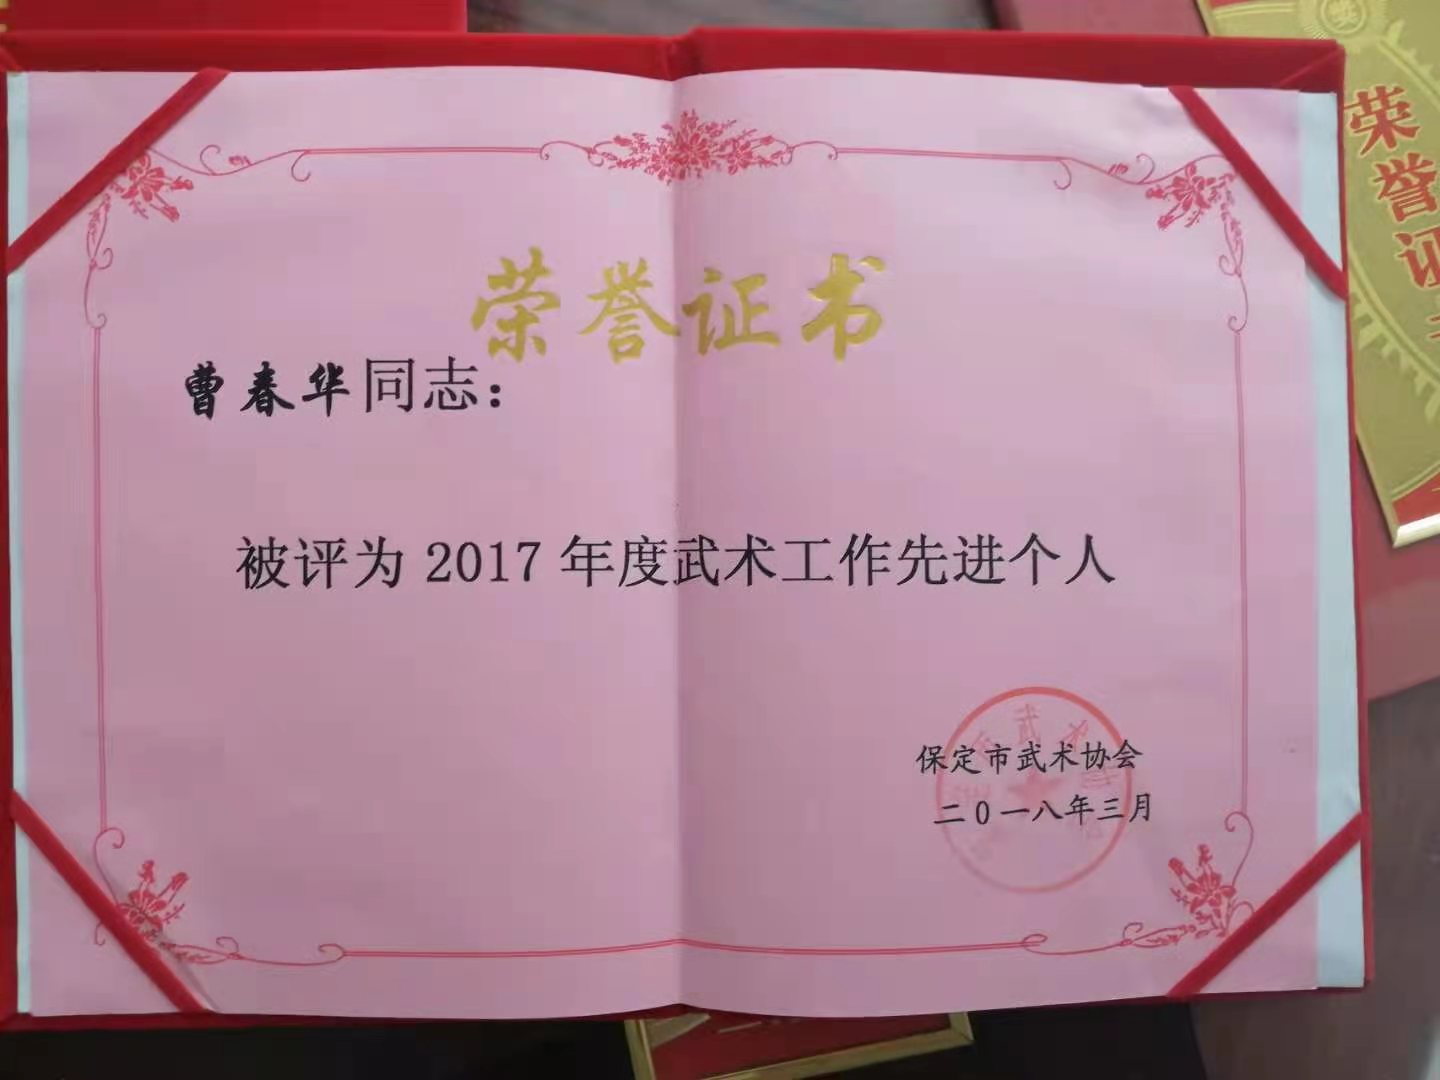 荣誉证书
曹春华同志：
被评为2017年度武术工作先进个人
保定市武术协会
二0一八年三月
荣誉证